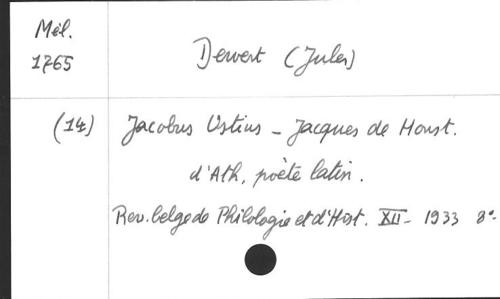 Mél.
1765
Dewert (Jules)
(14) Jacobus Ustius - Jacques de Houst.
d'Ath, poète latin.
Rev. belge de Philologie et d'Hist. XII - 1933 8°